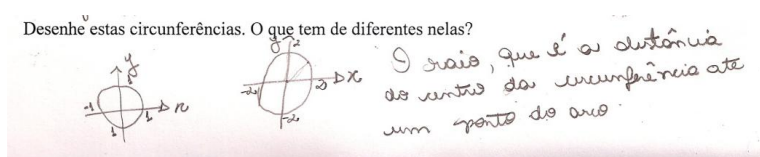 Desenhe estas circunferências. O que tem de diferentes nelas?
y
-1
1
x
1
y
2
-2
2
x
-2
O raio, que é a distância
do centro da circunferência ate
um ponto do arco.